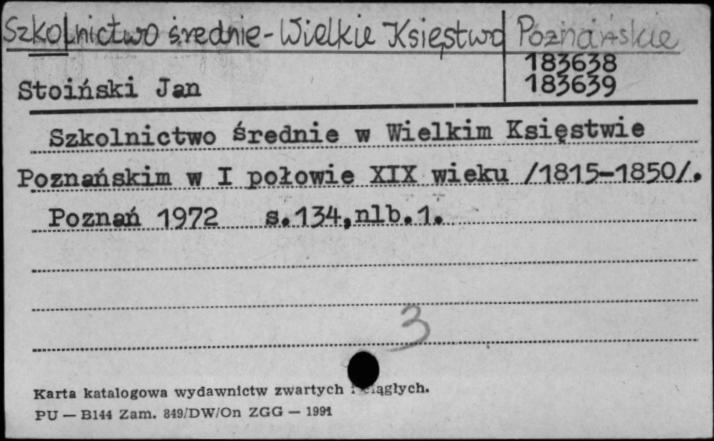 Szkolnictwo średnie - Wielkie Księstwo Poznańskie
183638
Stoiński Jan 183639
Szkolnictwo średnie w Wielkim Księstwie
Poznańskim w I połowie XIX wieku /1815-1850/.
Poznań 1972 s.134,nlb.1.
3
Karta katalogowa wydawnictw zwartych i ciągłych.
PU — B144 Zam. 849/DW/On ZGG — 1991